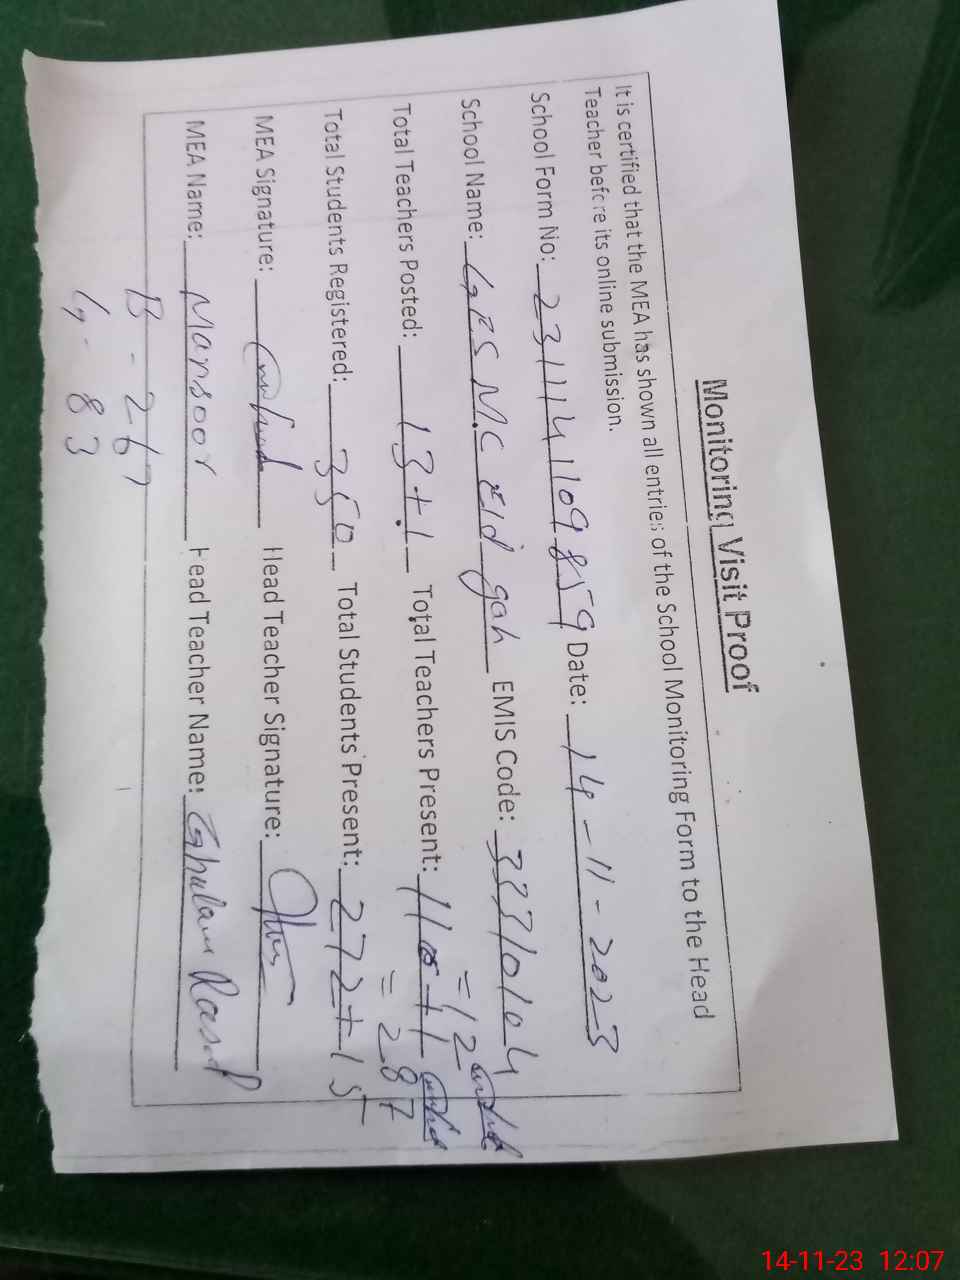 Monitoring Visit Proof
It is certified that the MEA has shown all entries of the School Monitoring Form to the Head
Teacher before its online submission.
School Form No: 231114109859 Date: 14-11-2023
School Name: GPS MC Eid gah EMIS Code: 33710104
= 12
Total Teachers Posted: 13+1 Total Teachers Present: 11+1
= 287
Total Students Registered: 350 Total Students Present: 272+15
MEA Signature: Head Teacher Signature:
MEA Name: Mansoor Head Teacher Name: Ghulam Rasool
B - 267
G - 83
14-11-23 12:07